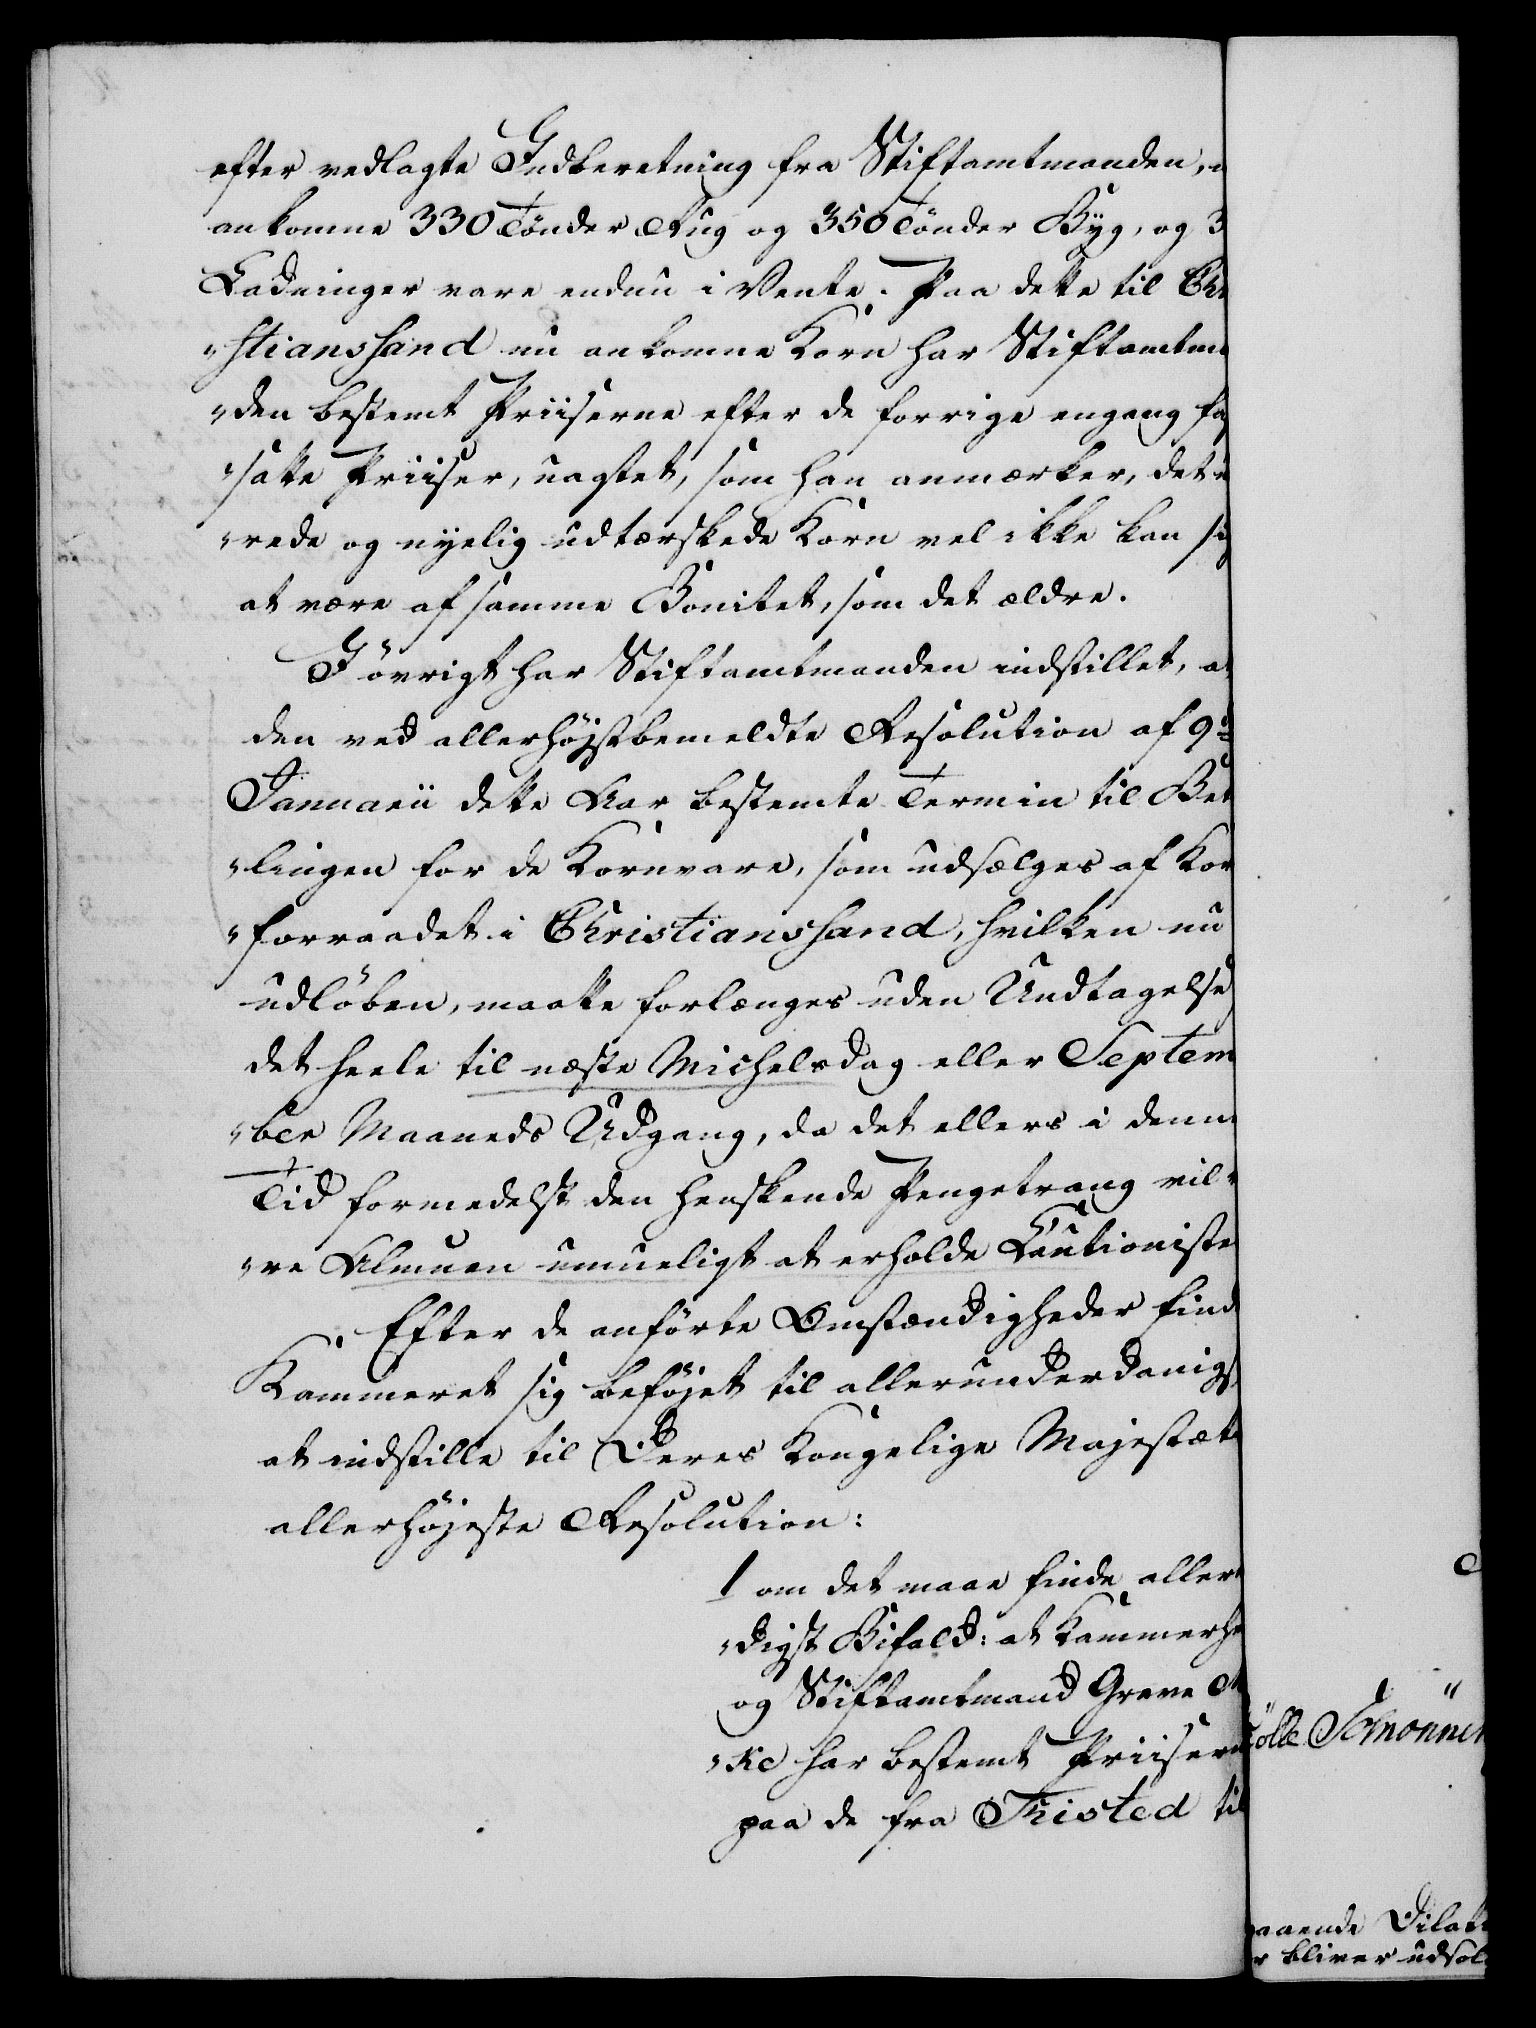 efter vedlagte Indberetning fra Stiftamtmanden,
ankomne 330 Tönder Rug og 350 Tönder Byg, og 3
Ladninger vare endnu i Vente. Paa dette til Chri
„stianssand nu ankomne Korn har Stiftamtm
„den bestemt Priiserne efter de forrige engang fa
„satte Priiser, uagtet, som han anmærker, det
„rede og nyelig udtærskede Korn vel ikke kan si
at være af samme Bonitet, som det ældre.
I övrigt har Stiftamtmanden indstillet, at
den ved allerhöjstbemeldte Resolution af 9de
Januarii dette Aar bestemte Termin til Bet
„lingen for de Kornvare, som udsælges af Kor
„forraadet i Christianssand, hvilken nu
udlöben, maatte forlænges uden Undtagelse
det heele til næste Michelsdag eller Septem
„ber Maaneds Udgang, da det ellers i denn
Tid formedelst den herskende Pengetrang vil
„re Almuen umueligt at erholde Cautioniste
Efter de anförte Omstændigheder find
Kammeret sig beföjet til allerunderdanigs
at indstille til Deres Kongelige Majestæts
allerhöjeste Resolution:
1 om det maae finde aller
„digst Bifald: at Kammerhe
og Stiftamtmand Greve M
„ke har bestemt Priisern
paa de fra Thisted til
ölle Schonne
aaende Dilat
r bliver udsol